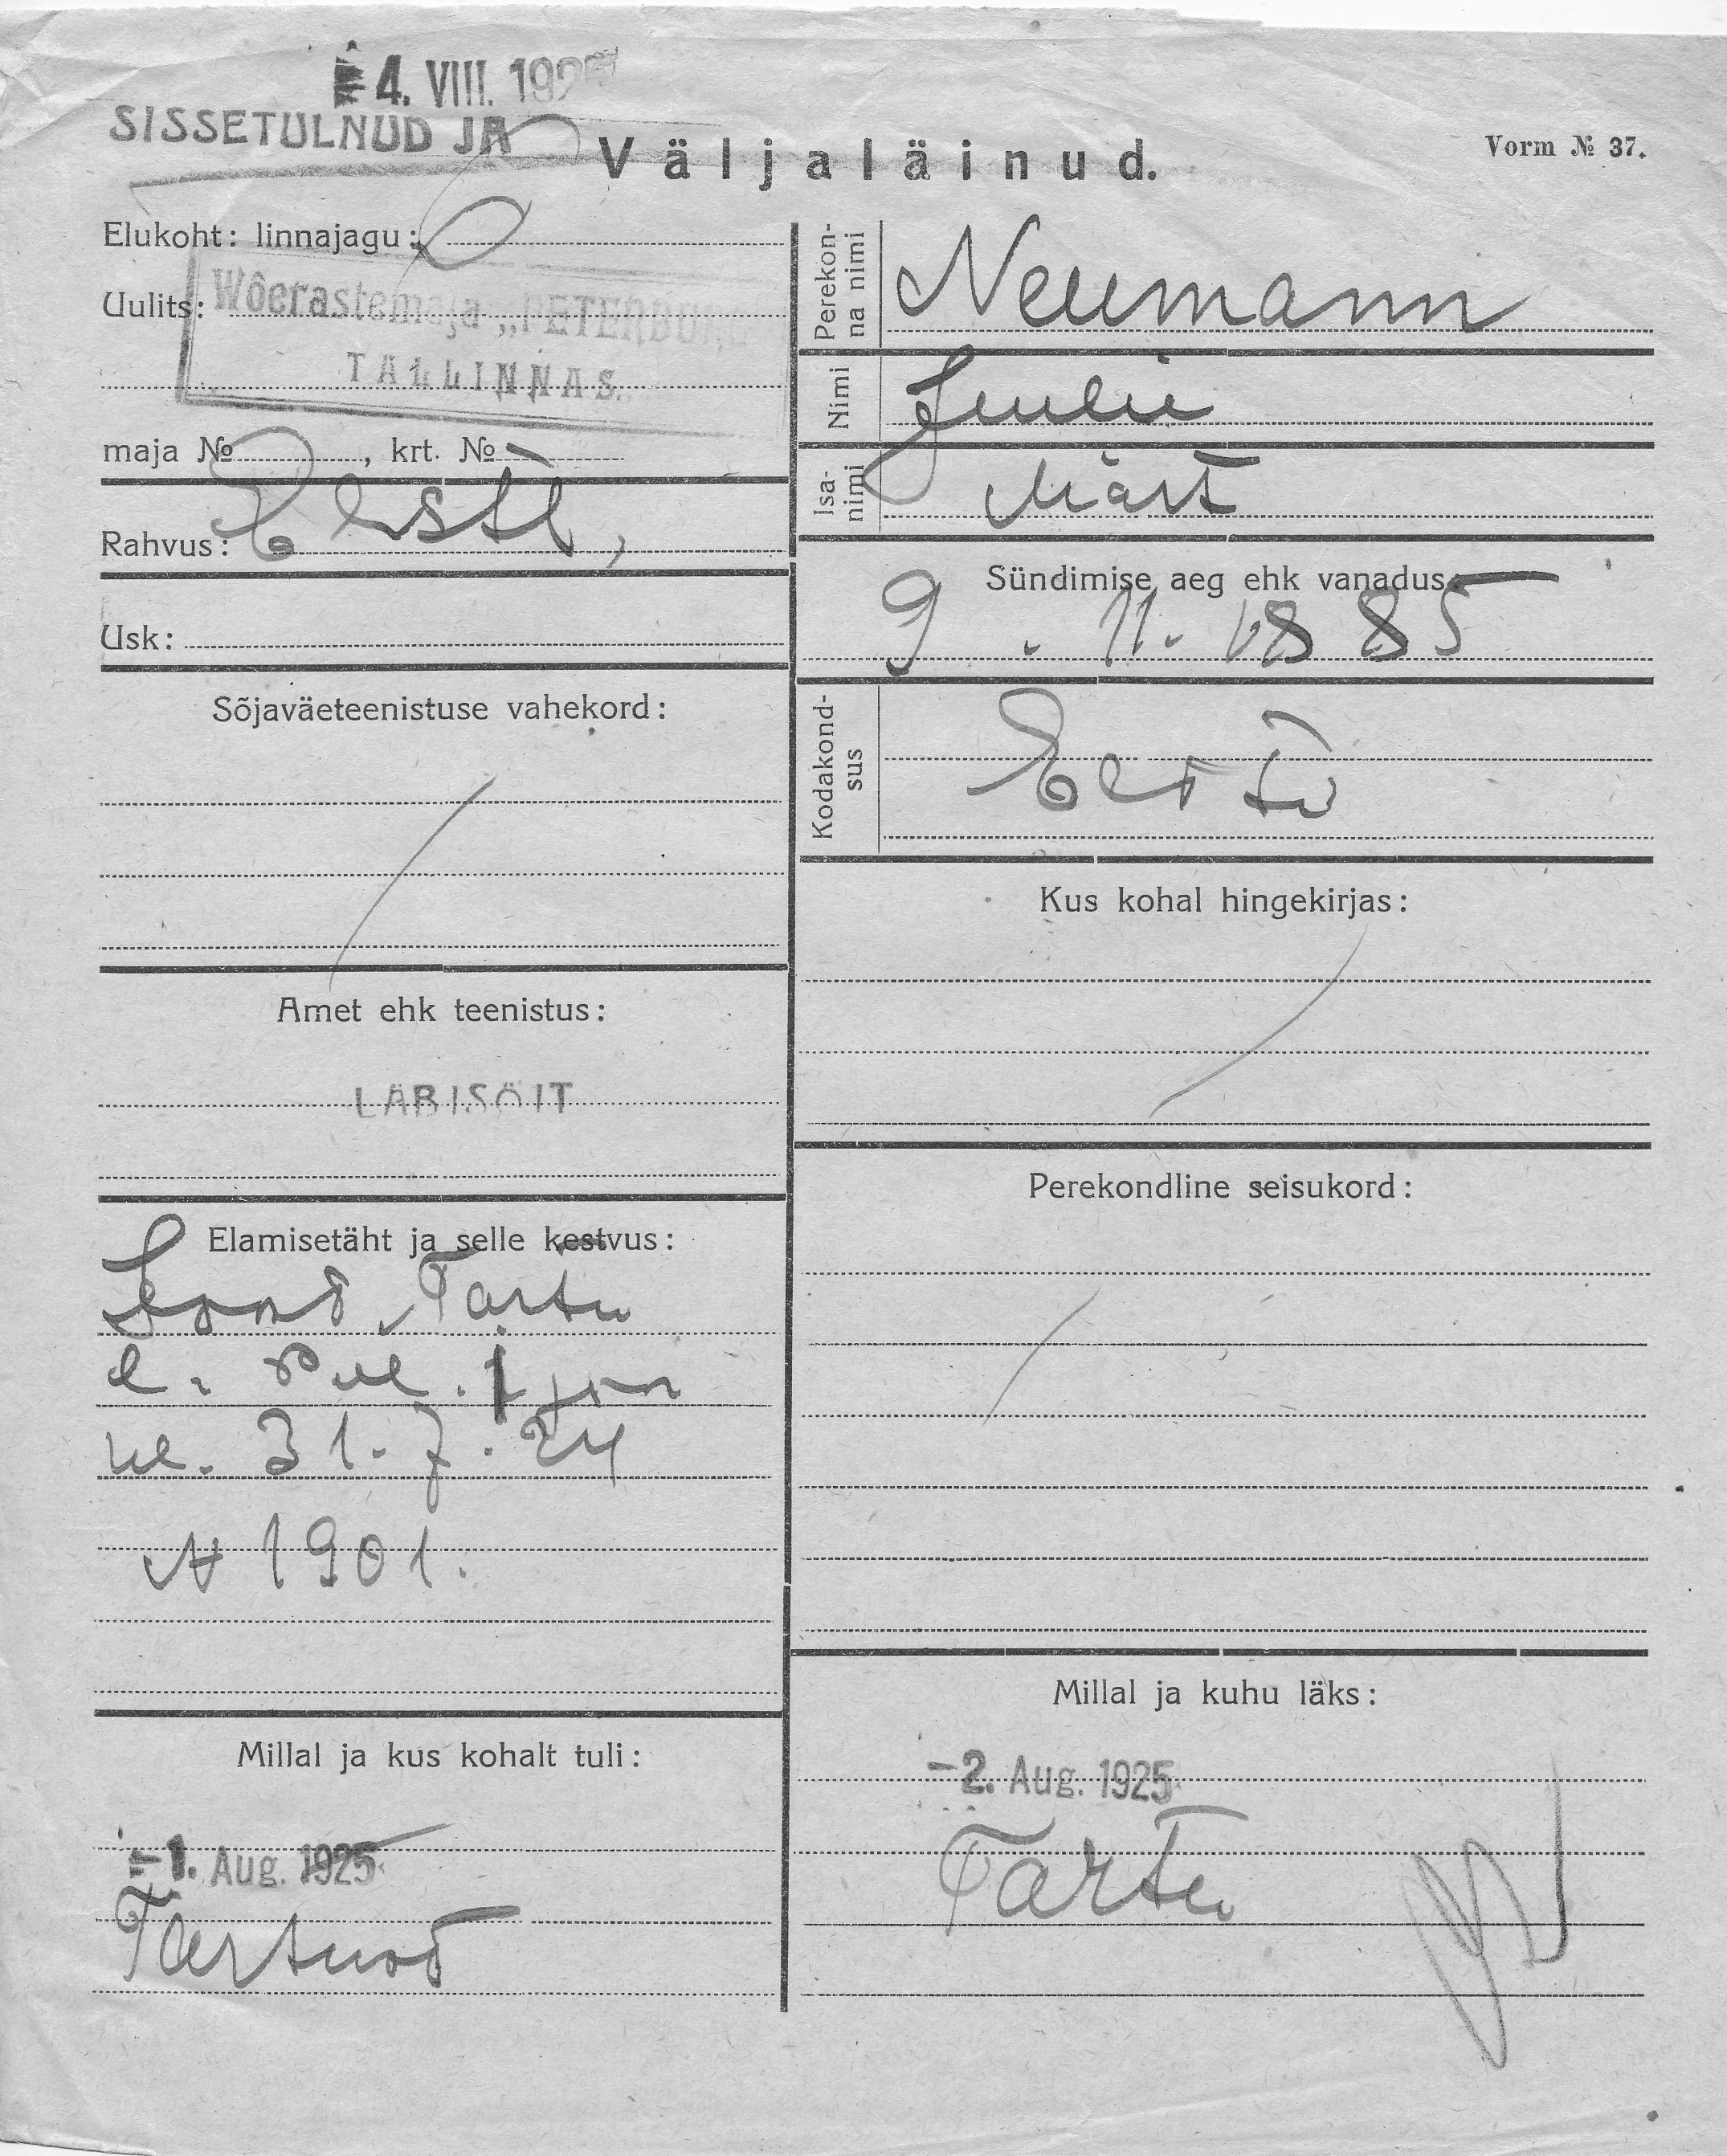 4. VIII. 192
SISSETULNUD JA
Väljaläinud.
Vorm № 37.
Elukoht: linnajagu:
Uulits:
Wõerastemaja „PETERBURG
TALLINNAS.
maja № , krt. №
Rahvus: Eesti,
Usk:
Sõjaväeteenistuse vahekord:
Amet ehk teenistus:
LÄBISÕIT
Elamisetäht ja selle kestvus:
Tartu
31.7.24
№ 1901.
Millal ja kus kohalt tuli:
-1. Aug. 1925
Tartust
Perekonna nimi
Neumann
Nimi
Juulie
Isanimi
Märt
Sündimise aeg ehk vanadus:
9. 11. 1885
Kodakondsus
Eesti
Kus kohal hingekirjas:
Perekondline seisukord:
Millal ja kuhu läks:
-2. Aug. 1925
Tartu